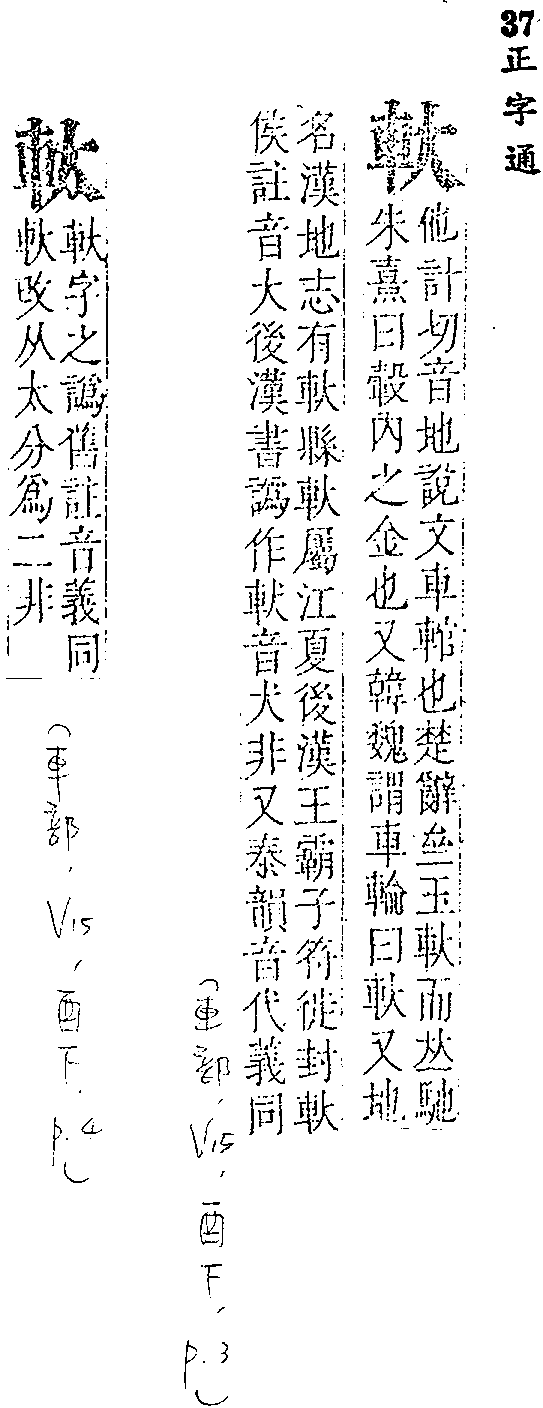 37正字通
軑
他計切音地說文車輨也楚辭亝玉軑而𠀤馳
朱熹曰轂內之金也又韓魏謂車輪曰軑又地
名漢地志有軑縣軑屬江夏後漢王霸子符徙封軑
侯註音大後漢書譌作軑音犬非又泰韻音代義同
(車部, V15, 酉下, p.3)
軑字之譌舊註音義同
軑攺从太分爲二非
(車部, V15, 酉下, p.4)